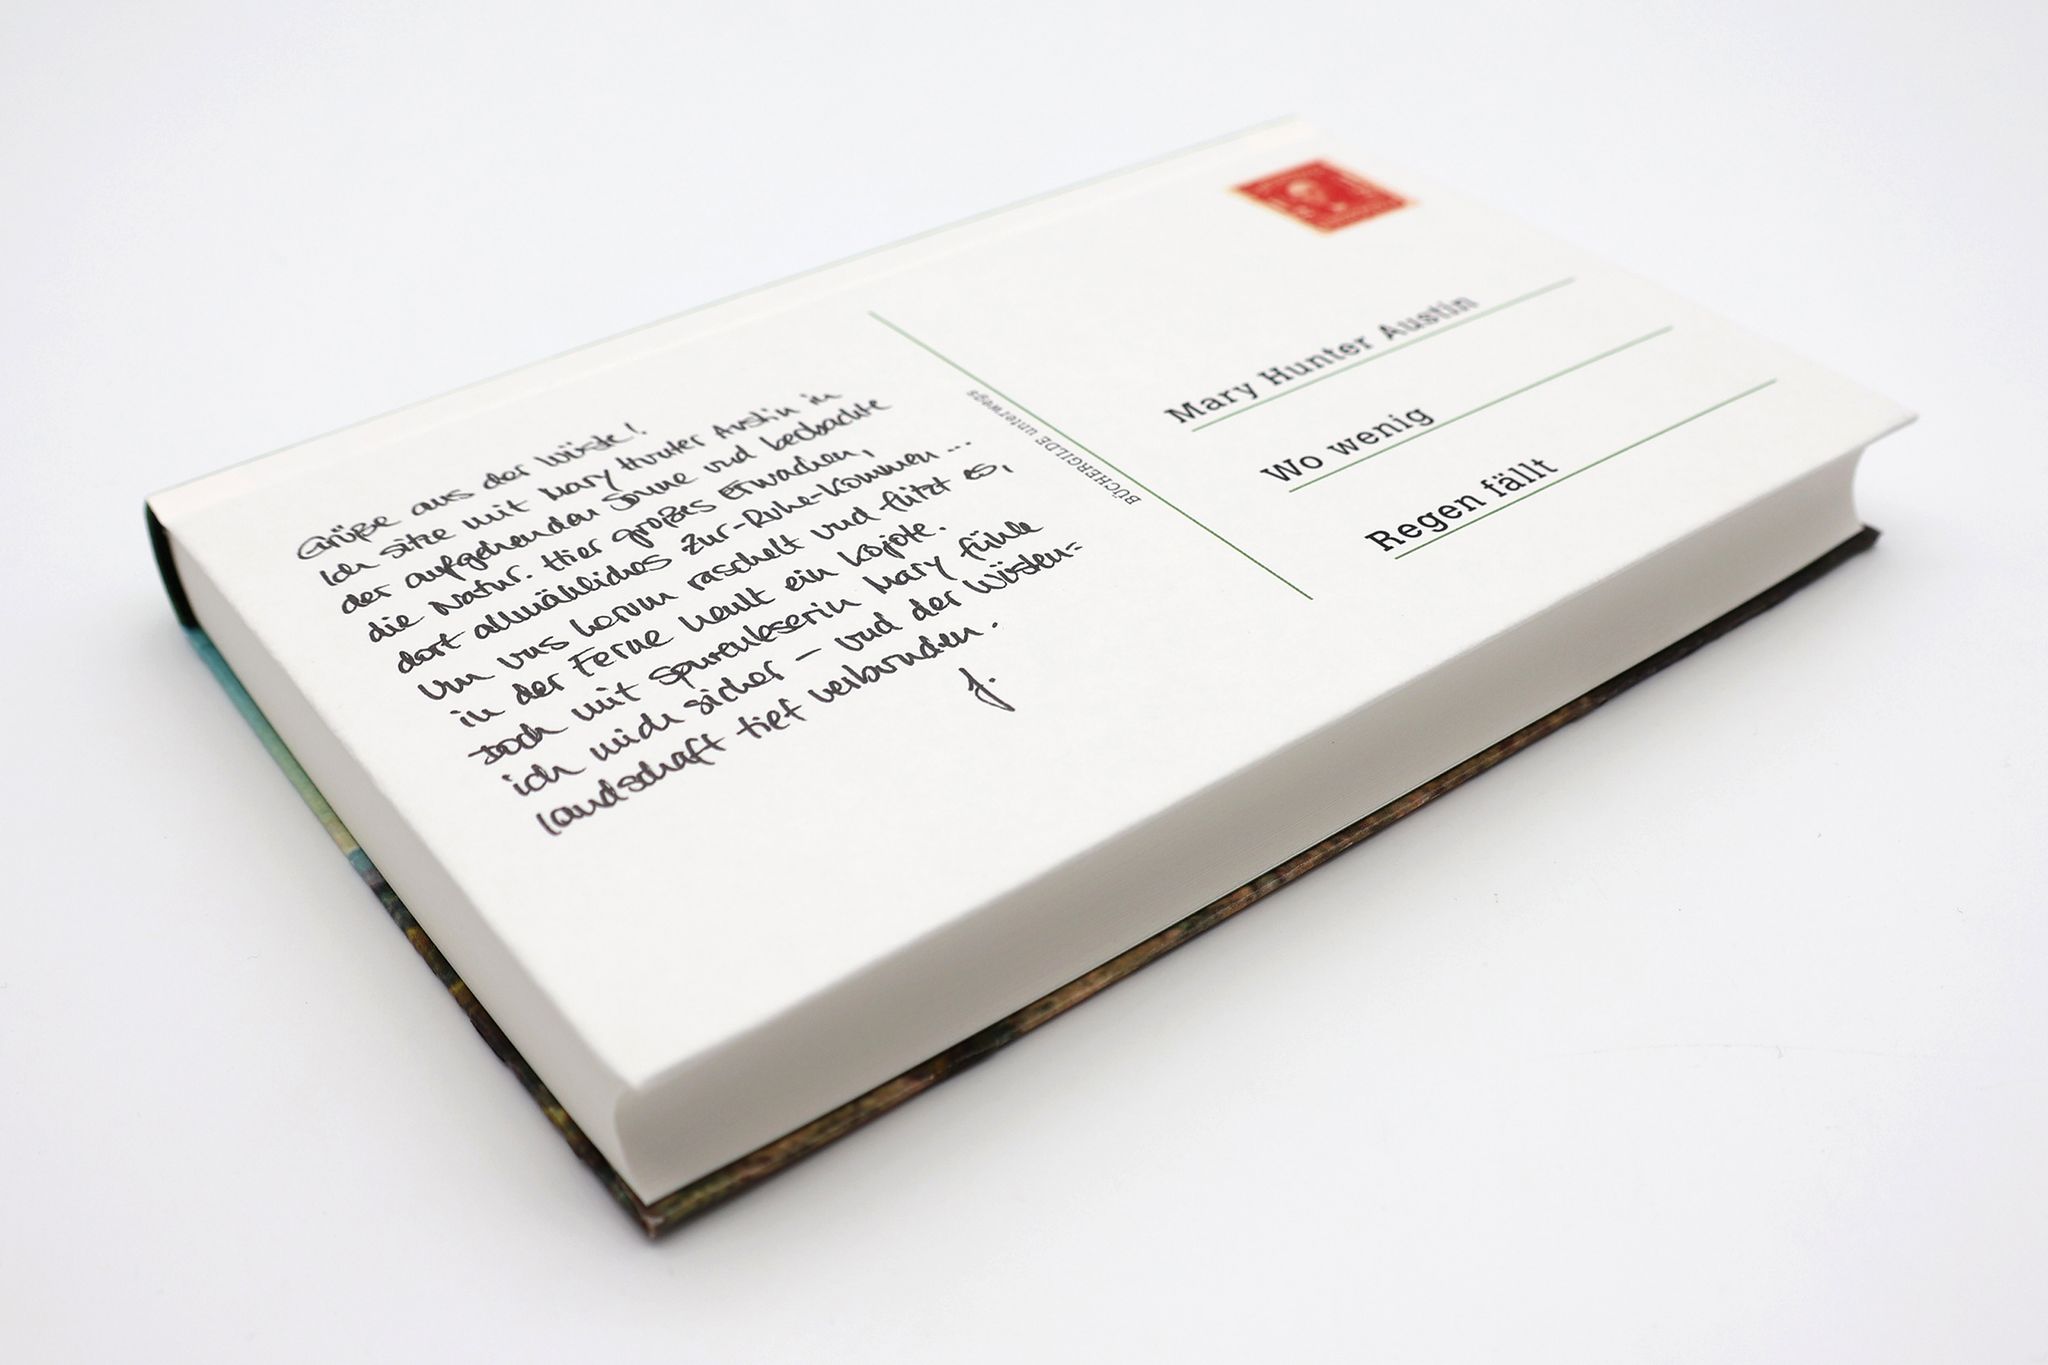 Grüße aus der Wüste!
Ich sitze mit Mary Hunter Austin in
der aufgehenden Sonne und beobachte
die Natur. Hier großes Erwachen,
dort allmähliches Zur-Ruhe-Kommen...
Um uns herum raschelt und flitzt es,
in der Ferne heult ein Kojote.
Doch mit Spurenleserin Mary fühle
ich mich sicher – und der Wüsten=
landschaft tief verbunden.
J.
BÜCHERGILDE unterwegs
Mary Hunter Austin
Wo wenig
Regen fällt